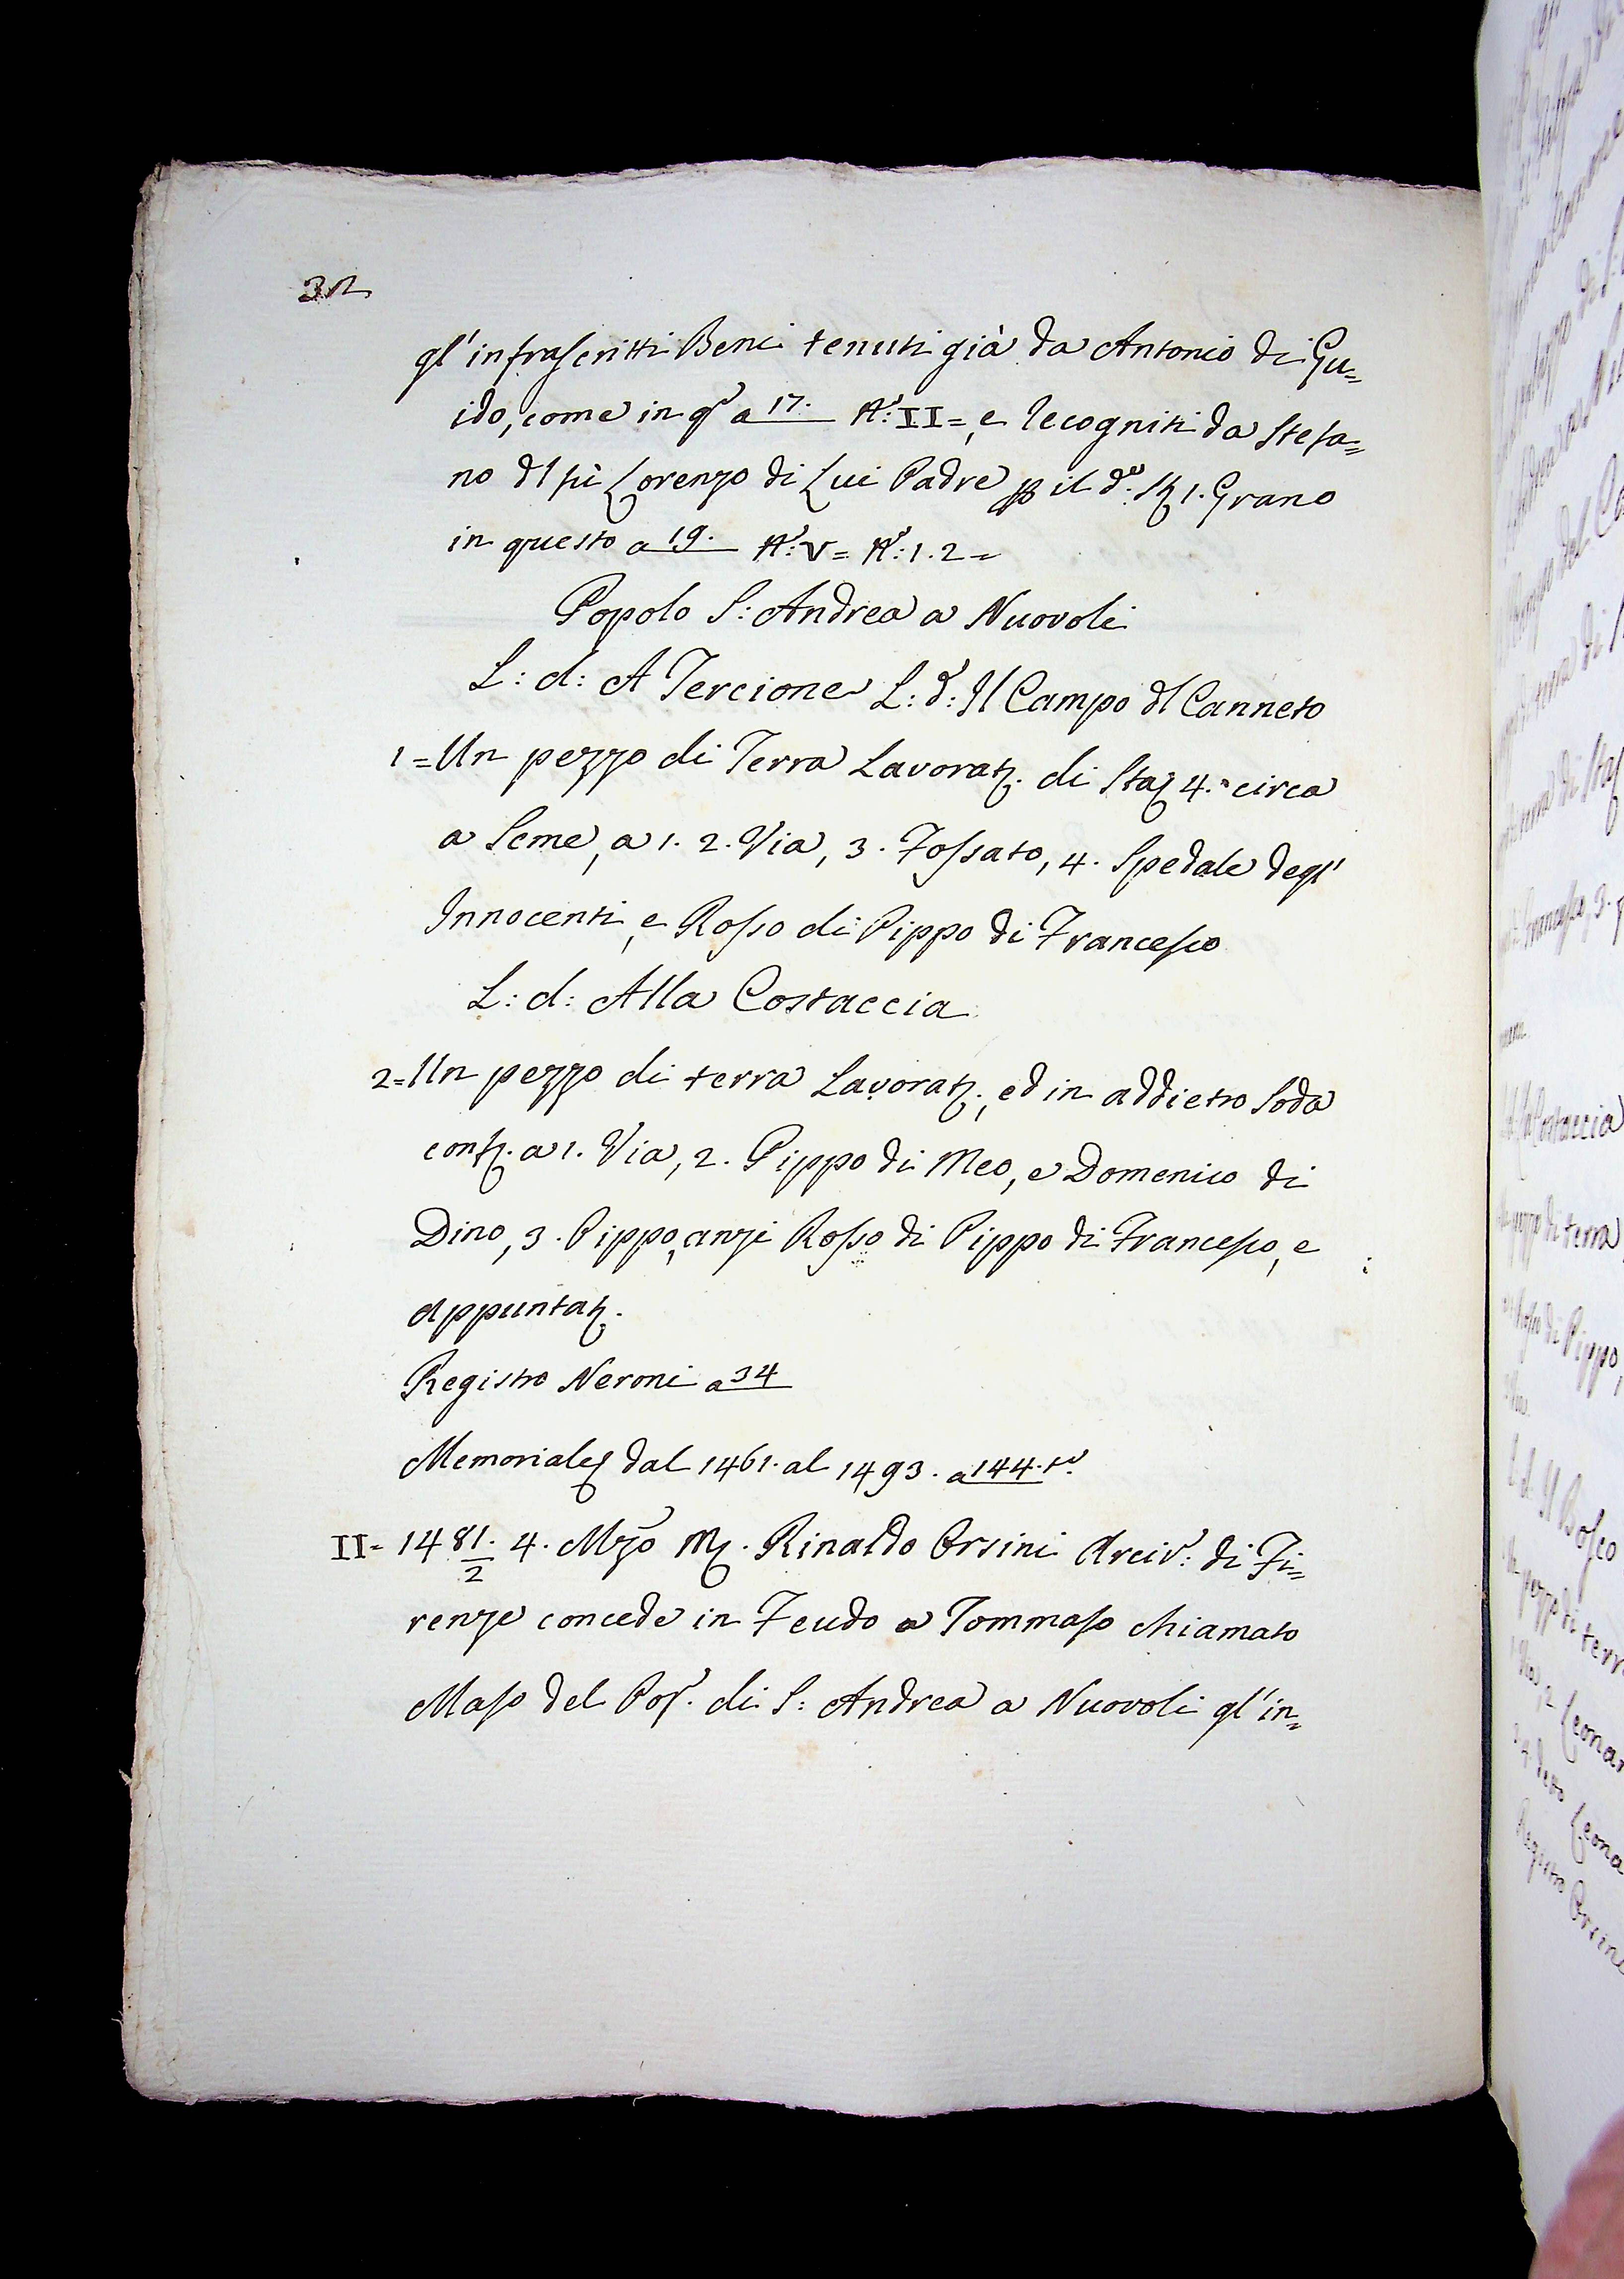 32
gl'infrascritti Beni tenuti già da Antonio di Gu=
ido, come in q.º a 17. N.º: II=, e recogniti da Stefa=
no dl fù Lorenzo di Lui Padre p il d.º: 1. Grano
in questo a 19. N.º: V= N.º: 1. 2=
Popolo S: Andrea a Nuovoli
L: d: A Tercione L: d: Il Campo dl Canneto
1=Un pezzo di Terra Lavorat. di Sta 4. circa
a Seme, a 1. 2. Via, 3. Fossato, 4. Spedale degl'
Innocenti, e Rosso di Pippo di Francesco
L: d: Alla Costaccia
2=Un pezzo di terra Lavorat., ed in addietro Soda
conf. a 1. Via, 2. Pippo di Meo, e Domenico di
Dino, 3. Pippo, anzi Rosso di Pippo di Francesco, e
appuntat.
Registro Neroni a 34
Memoriale dal 1461. al 1493. a 144. t.º
II= 1481./2 4. Mzo M. Rinaldo Orsini Arciv.: di Fi=
renze concede in Feudo a Tommaso chiamato
Maso del Pop. di S: Andrea a Nuovoli gl'in=
della Costaccia
pezzo di terra
Rosso di Pippo,
L: d: Il Bosco
Un pezzo di terr
Via, 2. Leonar
4. detto Leona
Registro Orsini